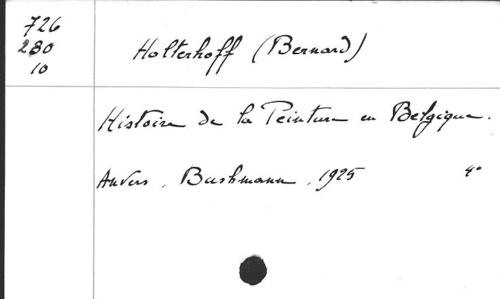 726
280
10
Holterhoff (Bernard)
Histoire de la Peinture en Belgique.
Anvers, Bushmann, 1925 4°